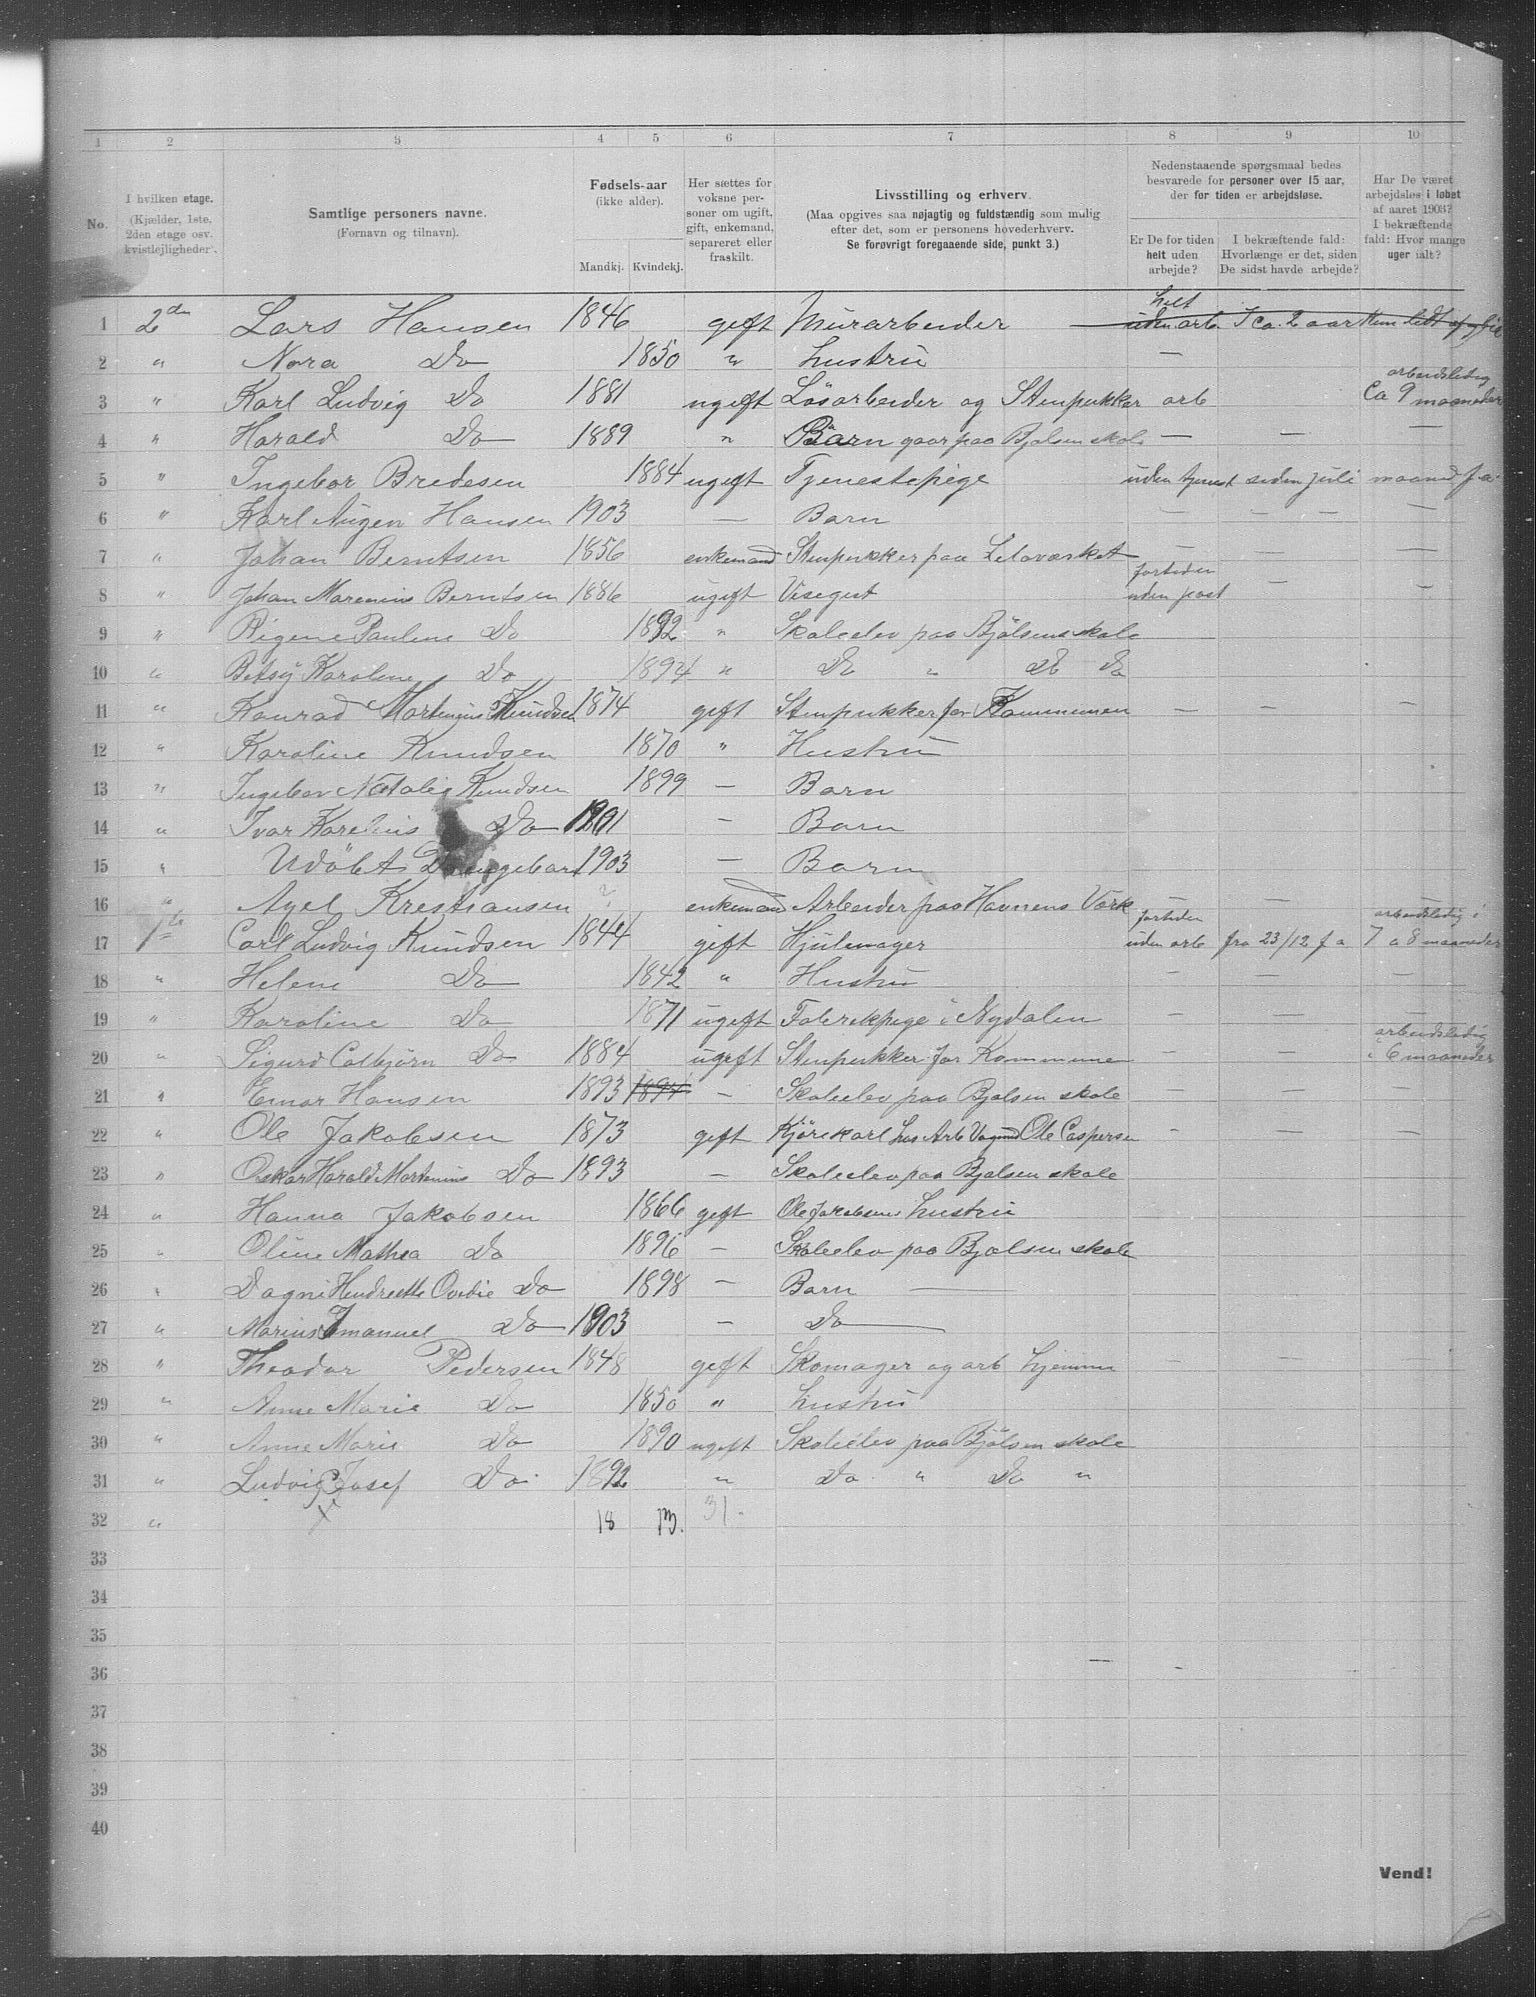 1 2 3 4 5 6 7 8 9 10
No.
I hvilken etage.
(Kjælder, 1ste,
2den etage osv.
kvistlejligheder).
Samtlige personers navne.
(Fornavn og tilnavn).
Fødsels-aar
(ikke alder).
Mandkj. Kvindekj.
Her sættes for
voksne per-
soner om ugift,
gift, enkemand,
separeret eller
fraskilt.
Livsstilling og erhverv.
(Maa opgives saa nøjagtig og fuldstændig som mulig
efter det, som er personens hovederhverv.
Se forøvrigt foregaaende side, punkt 3.)
Nedenstaaende spørgsmaal bedes
besvarede for personer over 15 aar,
der før tiden er arbejdsløse.
Er De for tiden
helt uden
arbejde?
I bekræftende fald:
Hvorlænge er det, siden
De sidst havde arbejde?
Har De været
arbejdsløs i løbet
af aaret 1903?
I bekræftende
fald: Hvor mange
uger ialt?
1 2den Lars Hansen 1846 gift Murarbeider helt uden arb. I ca. 2 aar
2 " Nora Do 1850 " hustru —
3 " Karl Ludvig Do 1881 ugift Løsarbeider og Stenpukker arb arbeidsledig Ca 9 maaneder
4 " Harald Do 1889 " Barn gaar paa Bjølsen skole — — —
5 " Ingebor Bredesen 1884 ugift Tjenestepige uden tjenest siden juli maaned f.a.
6 " Karl Augen Hansen 1903 — Barn — — —
7 " Johan Berntsen 1856 enkemand Stenpukker paa Leloværket — — —
8 " Johan Marenius Berntsen 1886 ugift Visegut fortiden uden post — —
9 " Rigene Pauline Do 1892 " Skoleelev paa Bjølsens skole
10 " Betsy Karoline Do 1894 " Do " Do Do
11 " Konrad Martinius Knudsen 1874 gift Stenpukker for Kommunen — — —
12 " Karoline Knudsen 1870 " Hustru
13 " Ingebor Natalie Knudsen 1899 — Barn
14 " Ivar Karelius Do 1901 — Barn
15 " Udöbt Drengebarn 1903 — Barn
16 " Axel Krestiansen ? enkemand Arbeider paa Havnens Værk — — —
17 1ste Carl Ludvig Knudsen 1844 gift Hjulmager fortiden uden arb fra 23/12 f a arbeidsledig i 7 a 8 maaneder
18 " Helene Do 1842 " Hustru — — —
19 " Karoline Do 1871 ugift Fabrikpige i Nydalen — — —
20 " Sigurd Colbjørn Do 1884 ugift Stenpukker for Kommune — — arbeidsledig i 6 maaneder
21 " Einar Hansen 1893 1894 — Skoleelev paa Bjølsen skole — — —
22 " Ole Jakobsen 1873 gift Kjørekarl hos Arb Vognmd Ole Caspersen — — —
23 " Oskar Harald Martinius Do 1893 — Skoleelev paa Bjølsen skole
24 " Hanna Jakobsen 1866 gift Ole Jacobsens hustru
25 " Oline Mathea Do 1896 — Skoleelev paa Bjølsen skole
26 " Dagni Hendreette Ovedie Do 1898 — Barn —
27 " Marius Imanuel Do 1903 — Do —
28 " Theodor Pedersen 1848 gift Skomager og arb hjemme — — —
29 " Anne Marie Do 1850 " hustru
30 " Anne Marie Do 1890 ugift Skoleelev paa Bjølsen skole
31 " Ludvig Josef Do. 1892 " Do. " Do "
32 " x 18 13. 31.
33
34
35
36
37
38
39
40
Vend!